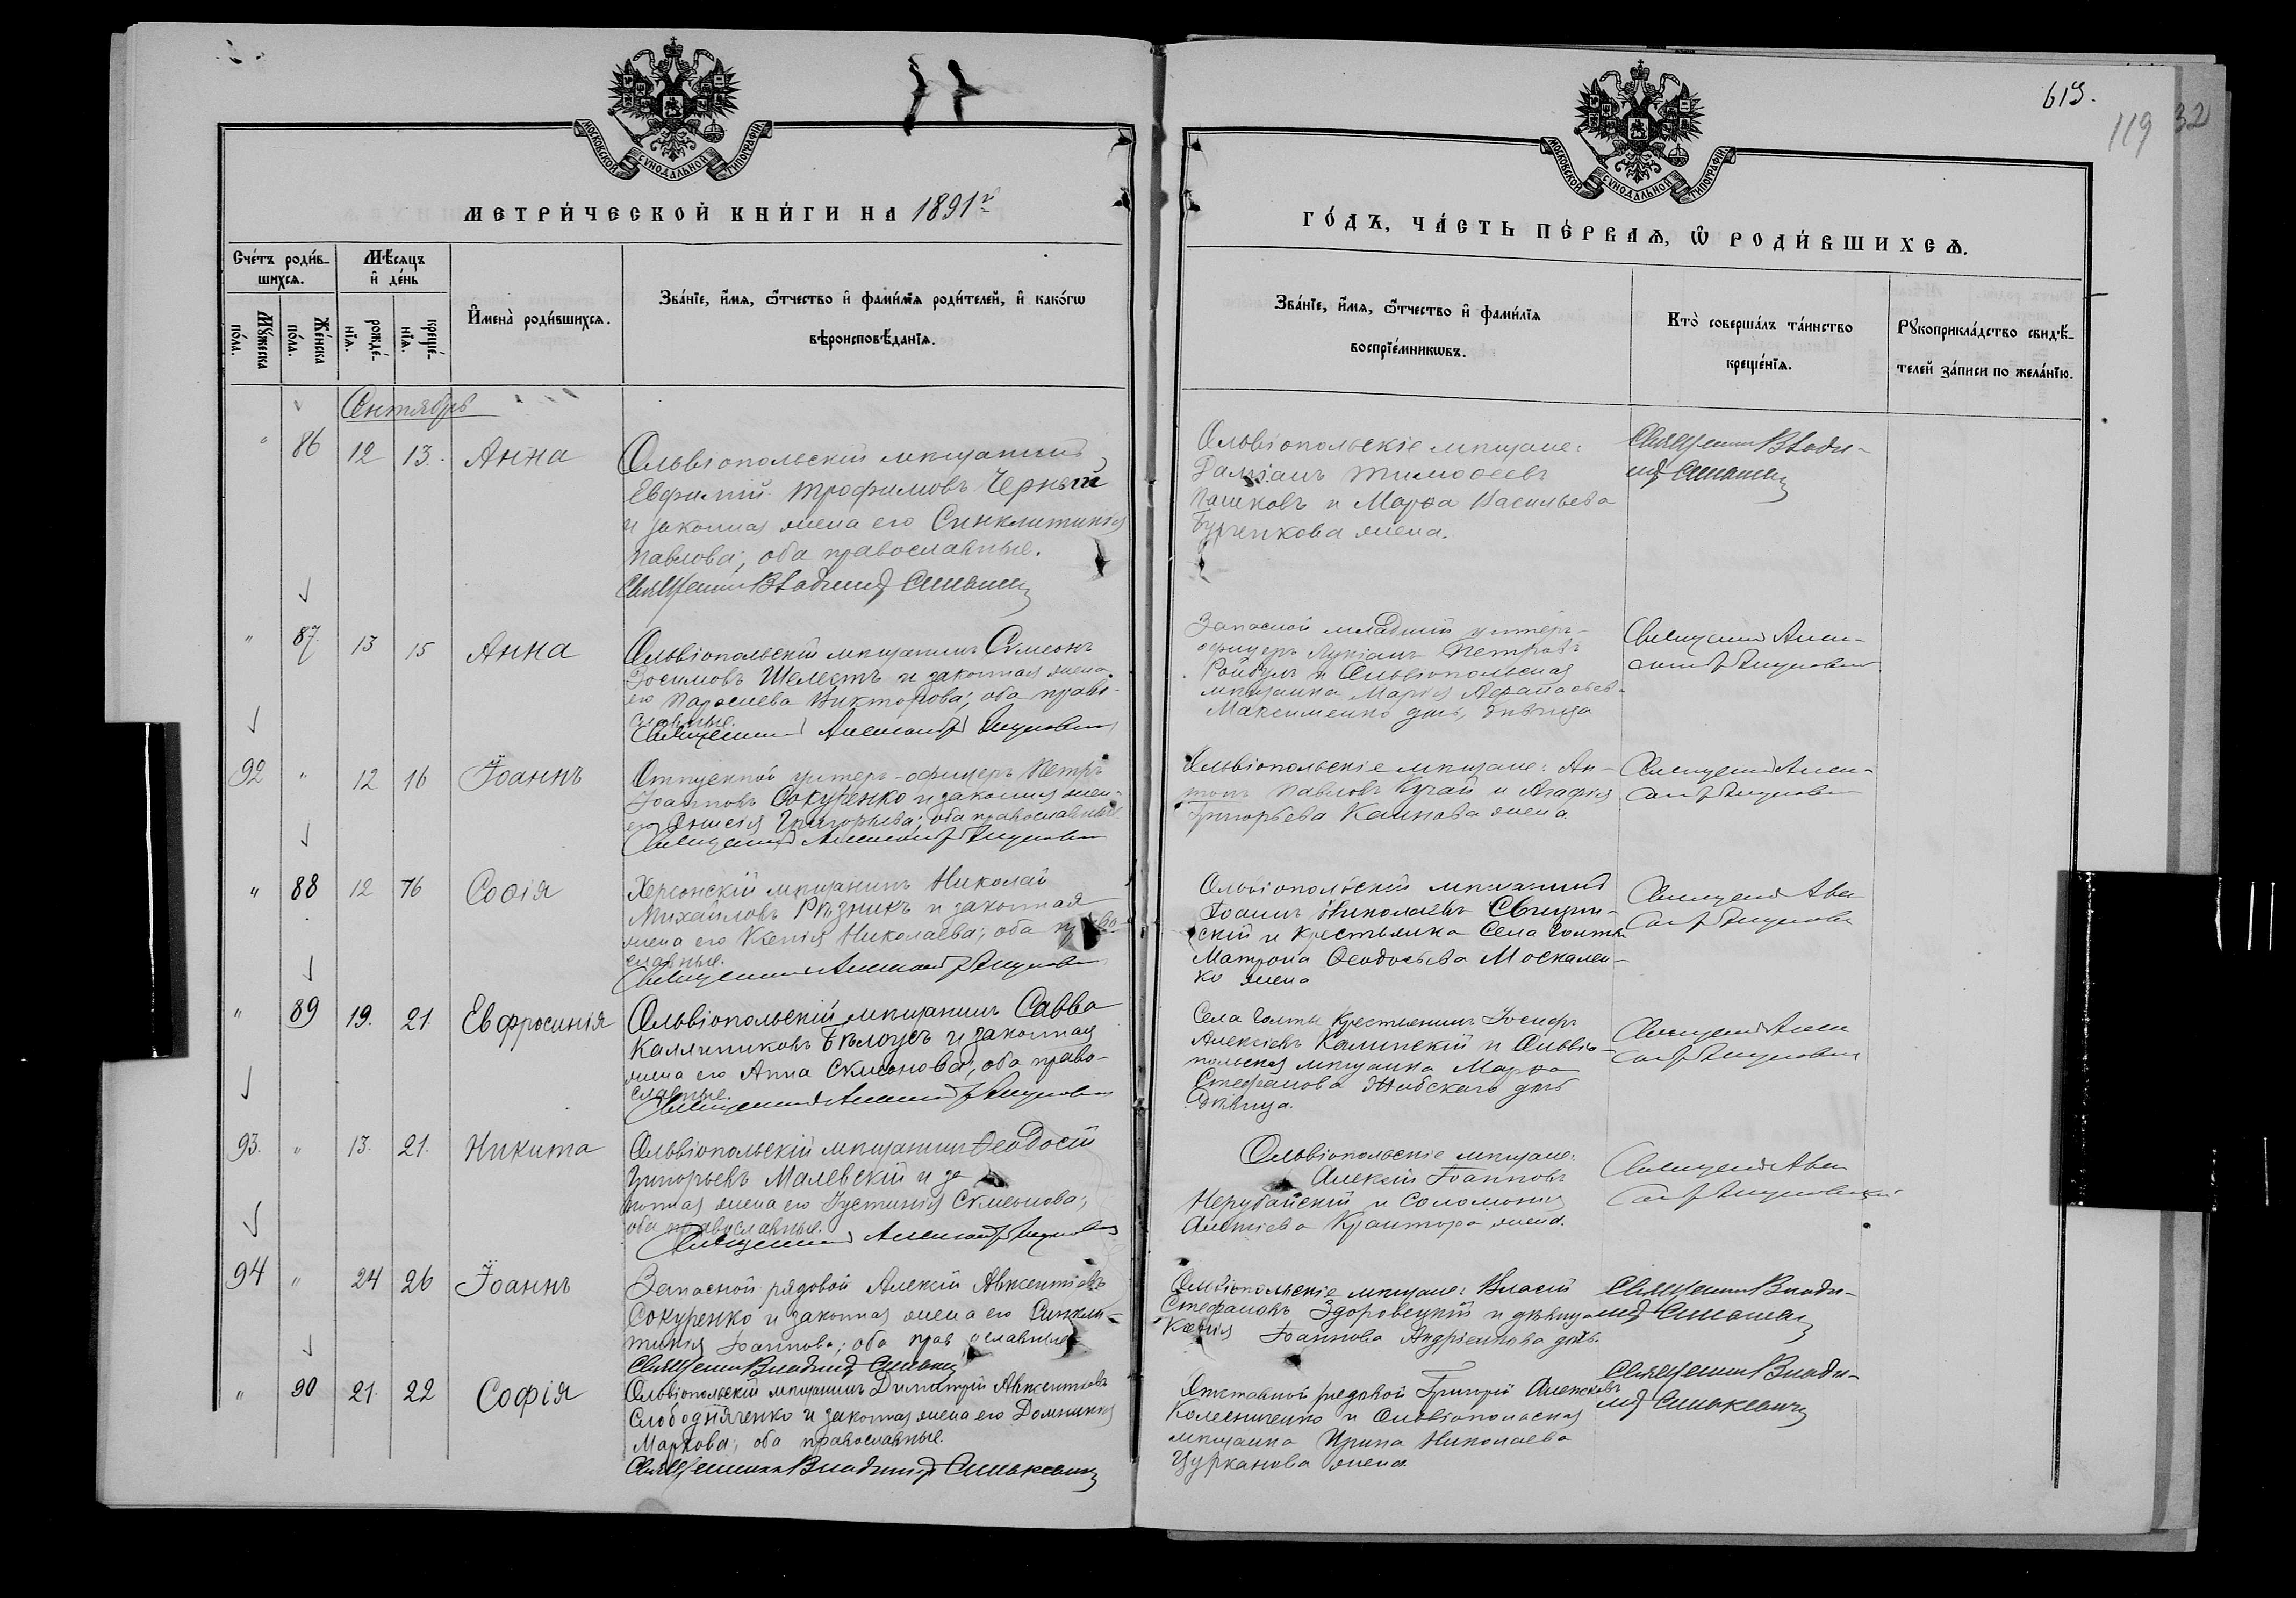 МОСКОВСКОЙ СУНОДАЛЬНОЙ ТИПОГРАФІИ
МЕТРИ́ЧЕСКОЙ КНИ́ГИ НА 1891й
Сче́тъ роди́в-
шихсѧ.
Мѣ́сѧцъ
и҆ де́нь
Мꙋ́жеска
по́ла.
Же́нска
по́ла.
рожде́-
нїѧ.
креще́-
нїѧ.
И҆мена̀ роди́вшихсѧ.
Зва́нїе, и҆́мѧ, ѻ҆́тчество и҆ фами́лїѧ роди́телей, и҆ како́гѡ
вѣроисповѣ́данїѧ.
Сентябрь
" 86 12 13. Анна
Ольвіопольскій мѣщанинъ
Евфимій Трофимовъ Черный
и законная жена его Синклитикія
Павлова; оба православные.
Священникъ Владимір
" 87 13 15 Анна
Ольвіопольскій мѣщанинъ Симеонъ
Зосимовъ Шелестъ и законная жена
его Параскева Викторова; оба право-
славные.
Священникъ Александръ
92 " 12 16 Іоаннъ
Отпускной унтеръ-офицеръ Петръ
Іоанновъ Сокуренко и законная жен-
его Григорьева; оба православные
Священникъ Александръ
" 88 12 16 Софія
Херсонскій мѣщанинъ Николай
Михайловъ Рѣзникъ и законная
жена его Ксенія Николаева; оба право-
славные.
Священникъ Александръ
" 89 19. 21. Евфросинія
Ольвіопольскій мѣщанинъ Савва
Каллиниковъ Бѣлоусъ и законная
жена его Анна Симеонова; оба право-
славные.
Священникъ Александръ
93. " 13. 21. Никита
Ольвіопольскій мѣщанинъ Ѳеодосій
Григорьевъ Малевскій и за
конная жена его Іустинія Симеонова;
оба православные.
Священникъ Александръ
94 " 24 26 Іоаннъ
Запасной рядовой Алексій Авксентіевъ
Сокуренко и законная жена его Синкли-
тикія Іоаннова; оба православные
Священникъ Владимір
" 90 21. 22 Софія
Ольвіопольскій мѣщанинъ Димитрій Авксентіевъ
Слободяниченко и законная жена его Домникія
Маркова; оба православные.
Священникъ Владимір Синькевичъ
619.
119 32
МОСКОВСКОЙ СУНОДАЛЬНОЙ ТИПОГРАФІИ
ГО́ДЪ, ЧА́СТЬ ПЕ́РВАѦ, Ѡ҆ РОДИ́ВШИХСѦ.
Зва́нїе, и҆́мѧ, ѻ҆́тчество и҆ фами́лїѧ
воспрїе́мникѡвъ.
Кто̀ соверша́лъ та́инство
креще́нїѧ.
Рꙋкоприкла́дство свидѣ́-
телей за́писи по жела́нїю.
Ольвіопольскіе мѣщане:
Тимоѳеевъ
Пашковъ и Марѳа Васильева
жена.
Священникъ Влади-
мір
Запасной младшій унтеръ-
офицеръ Лукіанъ Петровъ
и Ольвіопольская
мѣщанка Марія Аѳанасьева
Максименко дочь, дѣвица
Священникъ Алек-
сандръ
Ольвіопольскіе мѣщане: Ан-
тонъ Павловъ Кучай и Агафія
Григорьева жена
Священникъ Алек-
сандръ
Ольвіопольскій мѣщанинъ
Іоаннъ Николаевъ
скій и крестьянка села Голты
Матрона Ѳеодосьева Москален-
ко жена
Священникъ Алек
сандръ
Села Голты крестьянинъ Іосифъ
Алексіевъ Калинскій и Ольвіо-
польская мѣщанка Марѳа
Стефанова дочь
Дѣвица.
Священникъ Алек
сандръ
Ольвіопольскіе мѣщане:
Алексій Іоанновъ
Нерубайскій и Соломонія
Алексіева жена.
Священникъ Алек
сандръ
Ольвіопольскіе мѣщане: Власій
Стефановъ Здоровецкій и дѣвица
Ксенія Іоаннова дочь.
Священникъ Влади-
мір
Отставной рядовой Григорій Алексѣевъ
Колесниченко и Ольвіопольская
мѣщанка Ирина Николаева
Цурканова жена
Священникъ Влади-
мір Синькевичъ